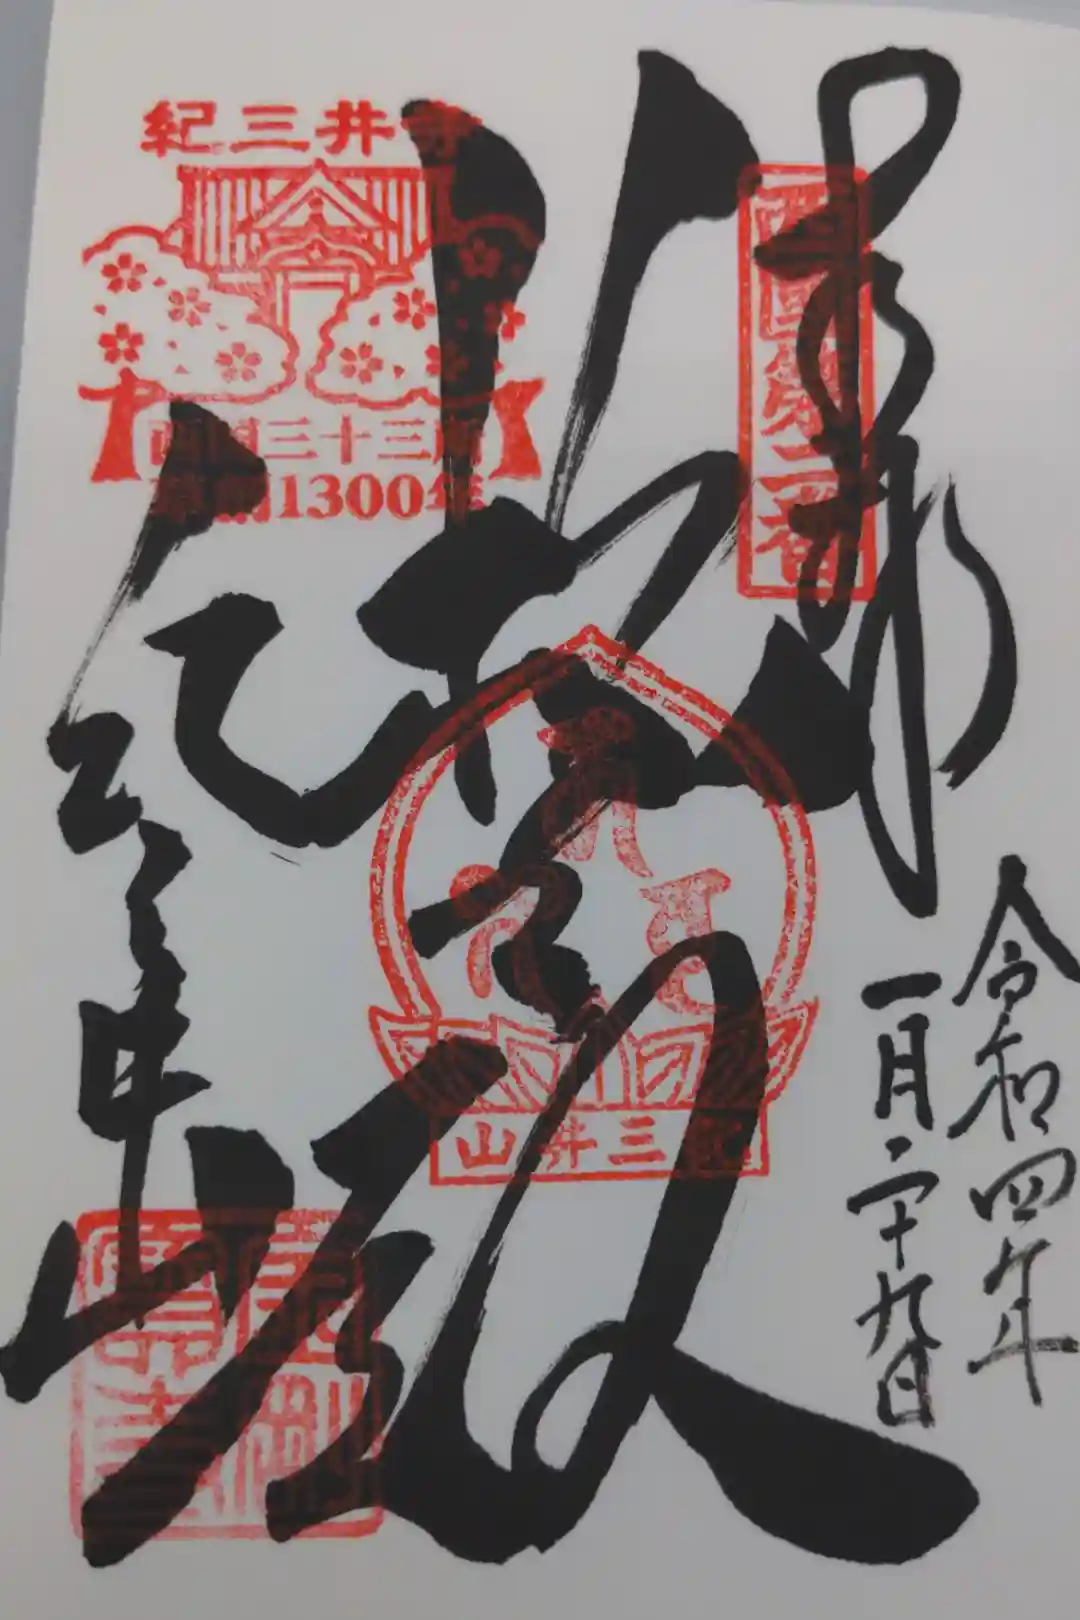 奉拝
令和四年
一月二十九日
西国第二番
救世殿
紀三井寺
西国三十三所
草創1300年
紀三井山
紀三井寺